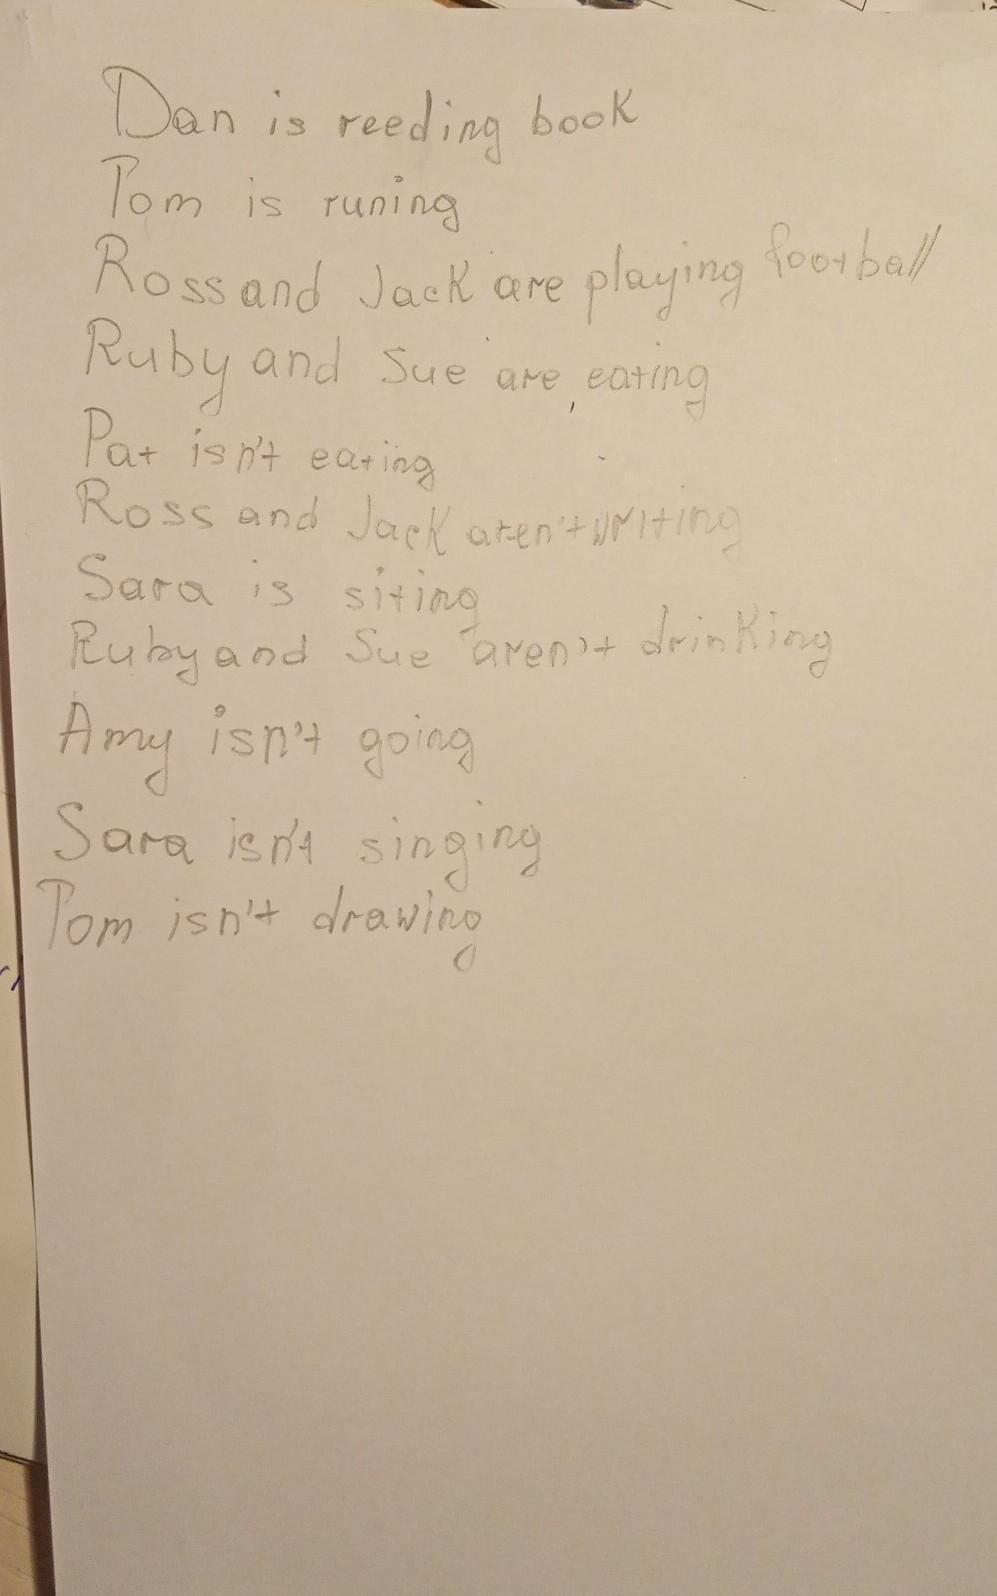 Dan is reeding book
Tom is runing
Ross and Jack are playing football
Ruby and Sue are eating
Pat isn't eating
Ross and Jack aren't writing
Sara is siting
Ruby and Sue aren't drinking
Amy isn't going
Sara isn't singing
Tom isn't drawing